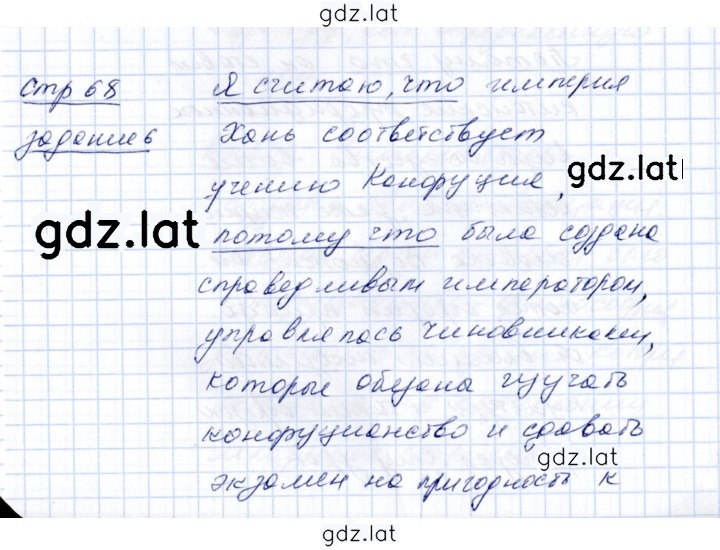 gdz.lat
стр 68 Я считаю, что империя
задание 6 Хань соответствует
gdz.lat
учению Конфуция,
gdz.lat
потому что была создана
справедливым императором,
управлялась чиновниками,
которые обязаны изучать
конфуцианство и сдавать
gdz.lat
экзамен на пригодность к
gdz.lat